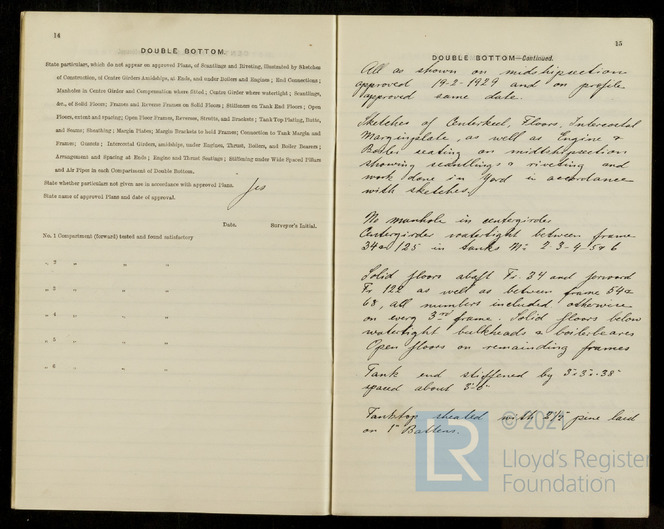 14
DOUBLE BOTTOM.
State particulars, which do not appear on approved Plans, of Scantlings and Riveting, illustrated by Sketches
of Construction, of Centre Girders Amidships, at Ends, and under Boilers and Engines; End Connections;
Manholes in Centre Girder and Compensation where fitted; Centre Girder where watertight; Scantlings,
&c., of Solid Floors; Frames and Reverse Frames on Solid Floors; Stiffeners on Tank End Floors; Open
Floors, extent and spacing; Open Floor Frames, Reverses, Struts, and Brackets; Tank Top Plating, Butts,
and Seams; Sheathing; Margin Plates; Margin Brackets to hold Frames; Connection to Tank Margin and
Frames; Gussets; Intercostal Girders, amidships, under Engines, Thrust, Boilers, and Boiler Bearers;
Arrangement and Spacing at Ends; Engine and Thrust Seatings; Stiffening under Wide Spaced Pillars
and Air Pipes in each Compartment of Double Bottom.
State whether particulars not given are in accordance with approved Plans. Yes
State names of approved Plans and date of approval.
Date. Surveyor's Initial.
No. 1 Compartment (forward) tested and found satisfactory
„ 2 „ „ „
„ 3 „ „ „
„ 4 „ „ „
„ 5 „ „ „
„ 6 „ „ „
15
DOUBLE BOTTOM—Continued.
All as shown on midshipsection
approved 19-2-1929 and on profile
approved same date.
Sketches of Centerkeel, Floors, Intercostal
Marginplate, as well as Engine &
Boiler seating on midshipsection
showing scantlings & riveting and
work done in Yard in accordance
with sketches.
No manhole in centergirder
Centergirder watertight between frame
34 & 125 in tanks No 2-3-4-5 & 6
Solid floors abaft Fr. 34 and forward
Fr 122 as well as between frame 54 &
68, all numbers included otherwise
on every 3rd frame. Solid floors below
watertight bulkheads & boilerbearers
Open floors on remainding frames
Tank end stiffened by
spaced about
Tanktop sheated with 2½" pine laid
on 1" Battens.
LR
© 202
Lloyd's Register
Foundation